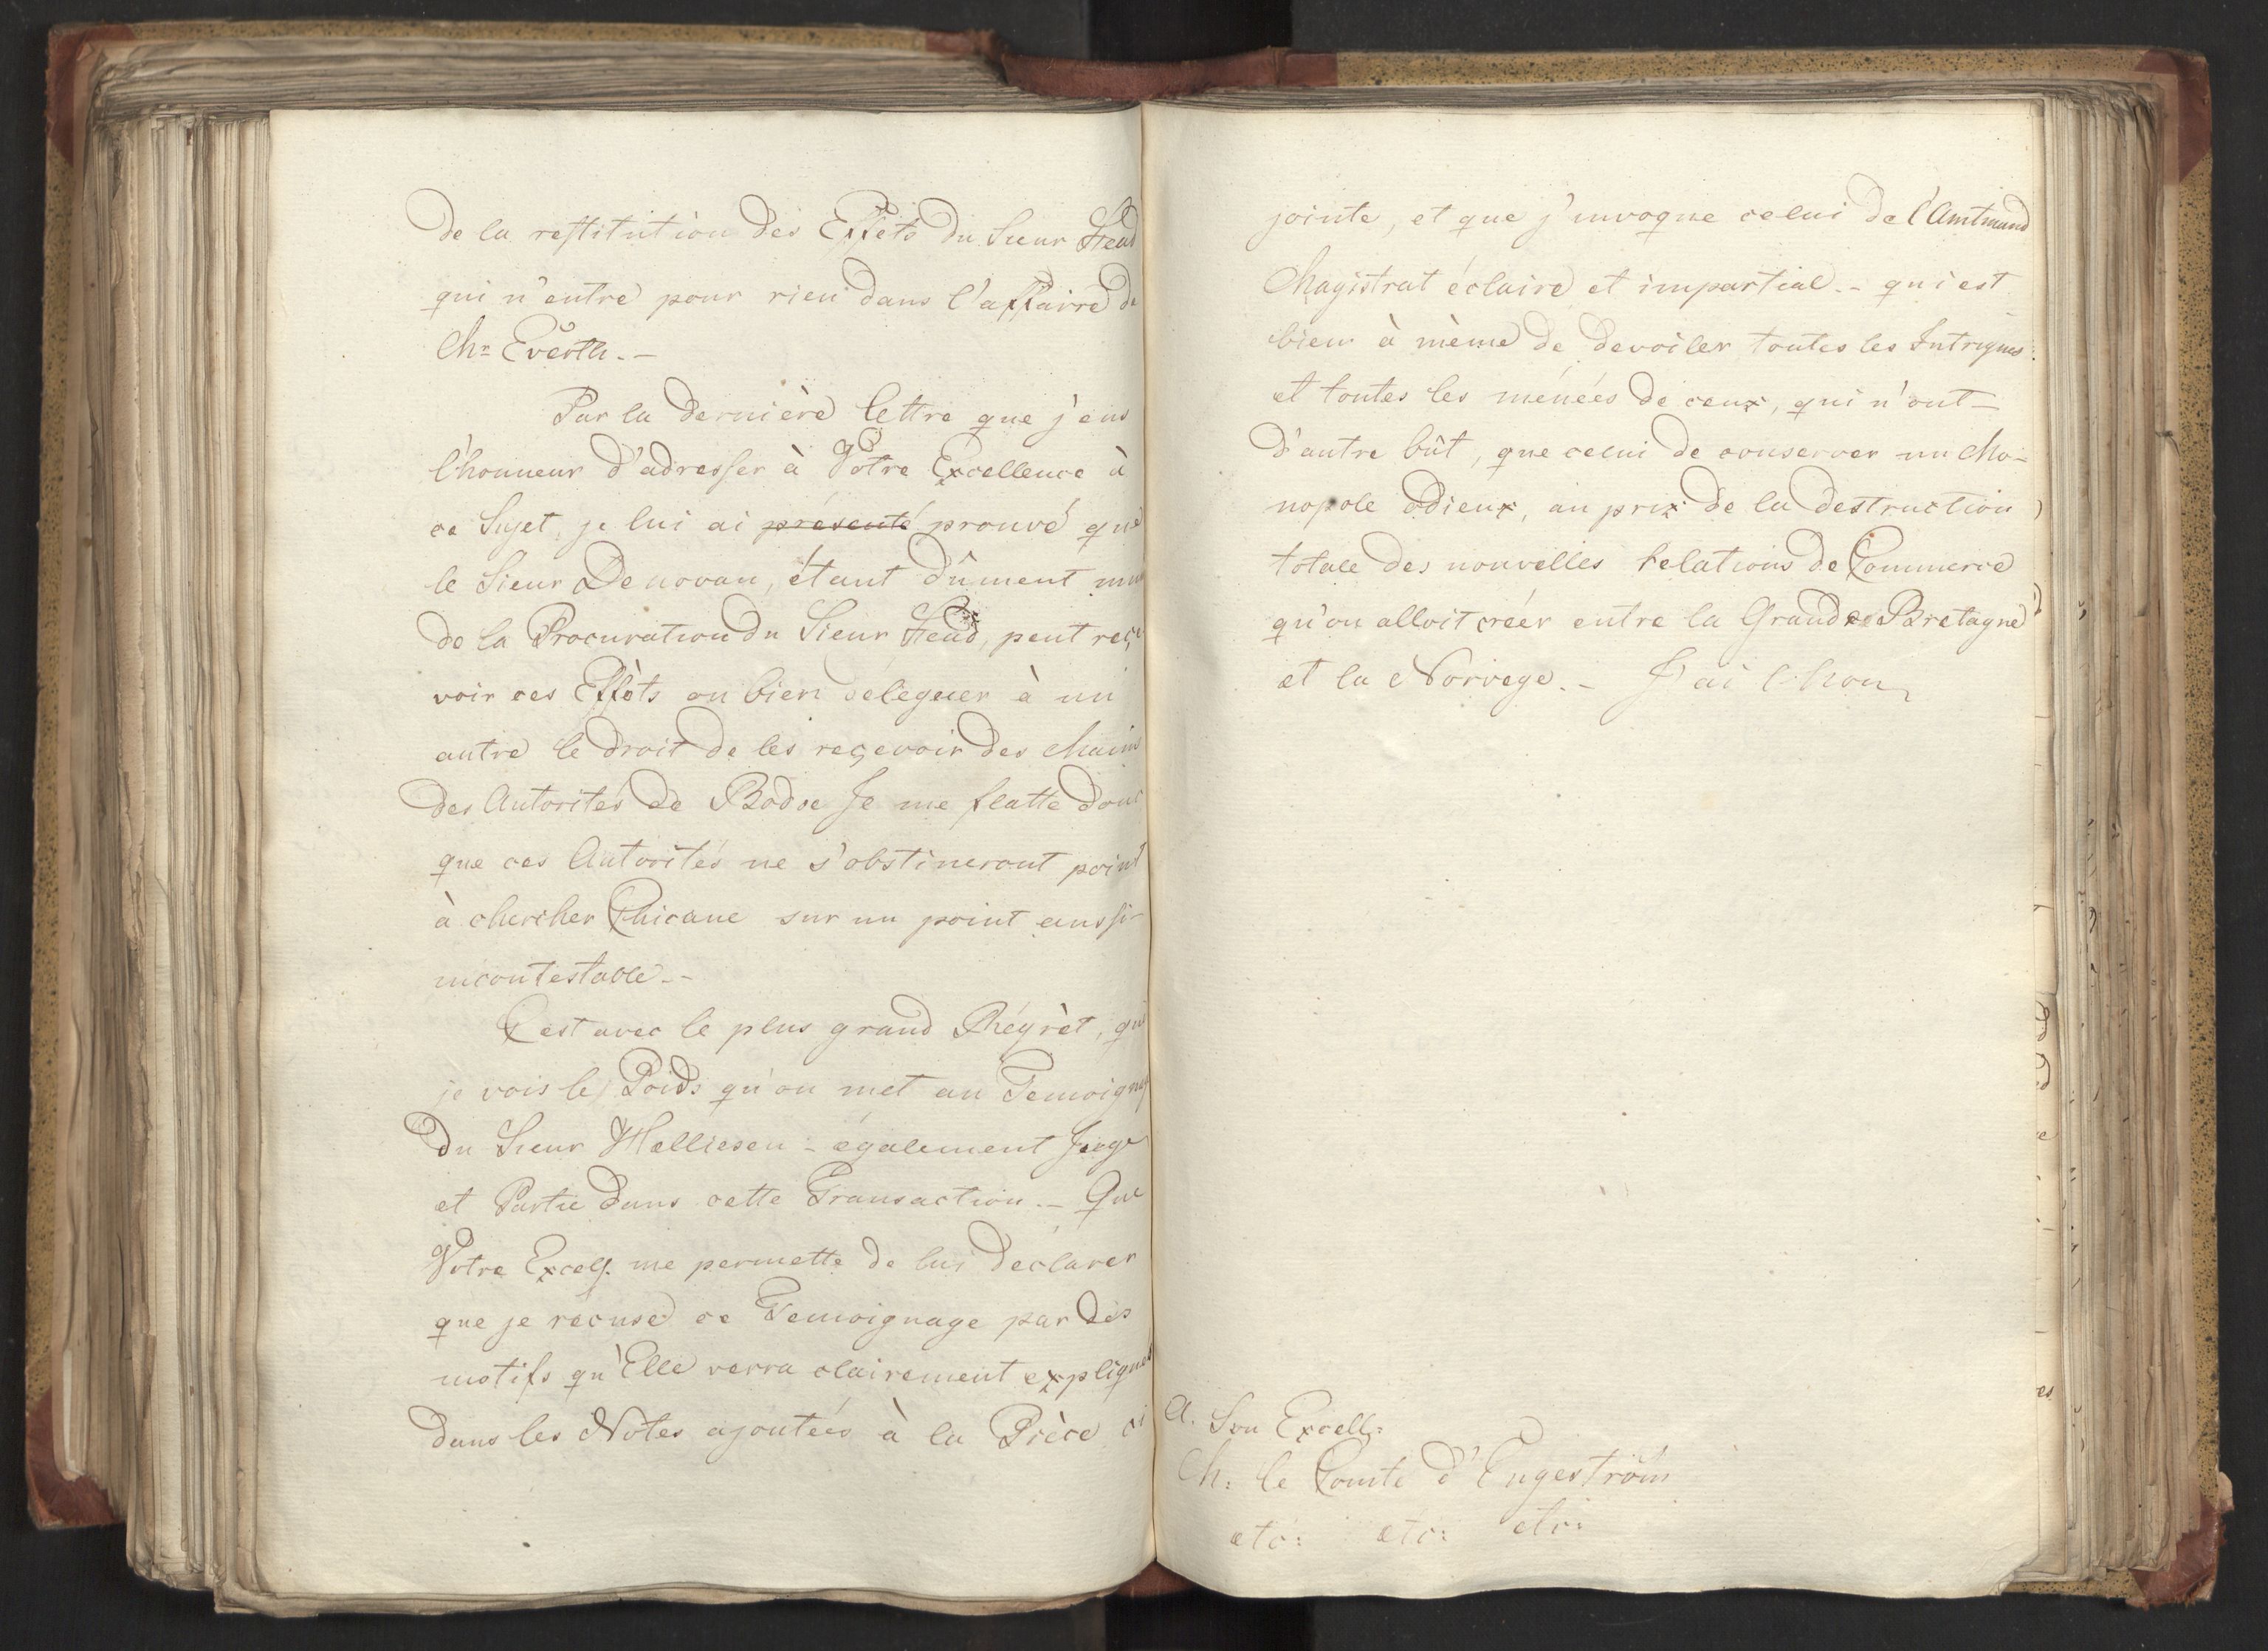 de la restitution des Effets du Sieur Head
qui n'entre pour rien dans l'affaire de
Mr Everth. –
Par la dernière lettre que j'eus
l'honneur d'adresser à Votre Excellence à
ce Sujet, je lui ai présenté prouvé que
le Sieur Denovan, étant dûment muni
de la Procuration du Sieur Head, peut reçe
voir ces Effèts ou bien déléguer à un
autre le droit de les reçevoir des Mains
des Autorités de Bodoe Je me flatte donc
que ces Autorités ne s'obstineront point
à chercher Chicane sur un point aussi-
incontestable. –
C'est avec le plus grand Régrèt, que
je vois le Poids qu'on met au Temoignage
du Sieur Halliesen – également Juge
et Partie dans cette Transaction. – Que
Votre Excell. me permette de lui déclarer
que je recuse ce Temoignage par des
motifs qu'Elle verra clairement expliqués
dans les Notes ajoutées à la Pièce ci
jointe, et que j'invoque celui de l'Amtmand
Magistrat éclairé et impartial. – qui est
bien à même de devoiler toutes les Intrigues
et toutes les menées de ceux, qui n'ont –
d'autre bût, que celui de conserver un Mo-
nopole odieux, au prix de la destruction
totale des nouvelles relations de Commerce
qu'on alloit créer entre la Grande Bretagne
et la Norvege. – J'ai l'hon
A. Son Excell:
M: le Comte d'Engeström
etc: etc: etc: